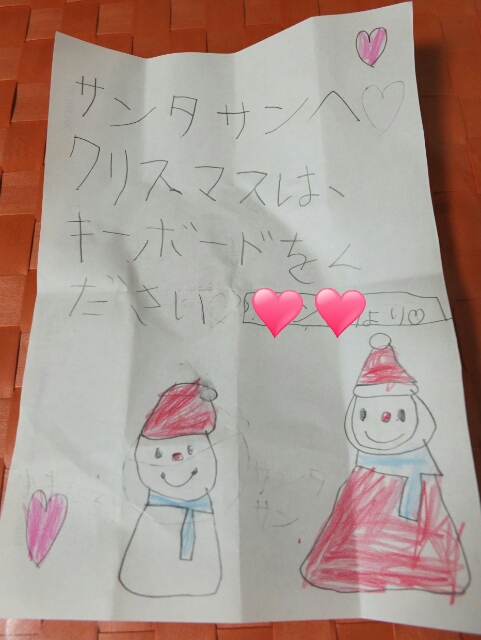 サンタサンへ♡
クリスマスは、
キーボードをく
ださい♡
より♡